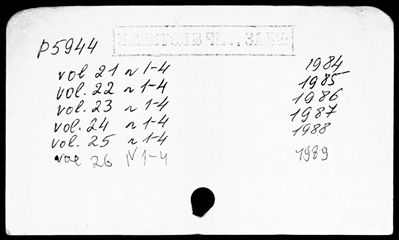 P5944
vol. 21 N 1-4 1984
vol. 22 N 1-4 1985
vol. 23 N 1-4 1986
vol. 24 N 1-4 1987
vol. 25 N 1-4 1988
vol 26 N 1-4 1989